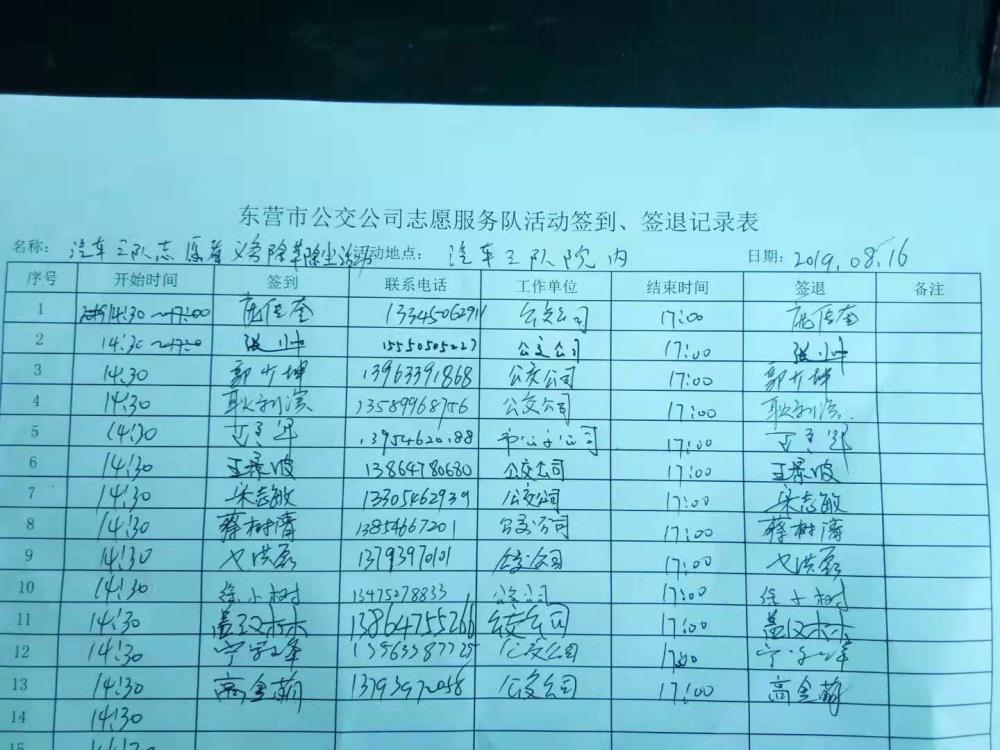 东营市公交公司志愿服务队活动签到、签退记录表
名称: 汽车三队志愿者义务除草除尘活动 活动地点: 汽车三队院内 日期: 2019.08.16
序号 开始时间 签到 联系电话 工作单位 结束时间 签退 备注
1 14:30~17:00 13345062911 公交公司 17:00
2 14:30~17:00 张帅 15550505227 公交公司 17:00 张帅
3 14:30 郭少坤 13963391868 公交公司 17:00 郭少坤
4 14:30 耿利滨 13589968756 公交公司 17:00 耿利滨
5 14:30 13954620188 市公交公司 17:00
6 14:30 王景波 13864780680 公交公司 17:00 王景波
7 14:30 宋志敏 13305462939 公交公司 17:00 宋志敏
8 14:30 蔡树清 13854667201 公交公司 17:00 蔡树清
9 14:30 13793970101 公交公司 17:00
10 14:30 徐小树 13475278833 公交公司 17:00 徐小树
11 14:30 盖汉林 13864755266 公交公司 17:00 盖汉林
12 14:30 13563387725 公交公司 17:00
13 14:30 高金萌 13793972058 公交公司 17:00 高金萌
14 14:30
15 14:30